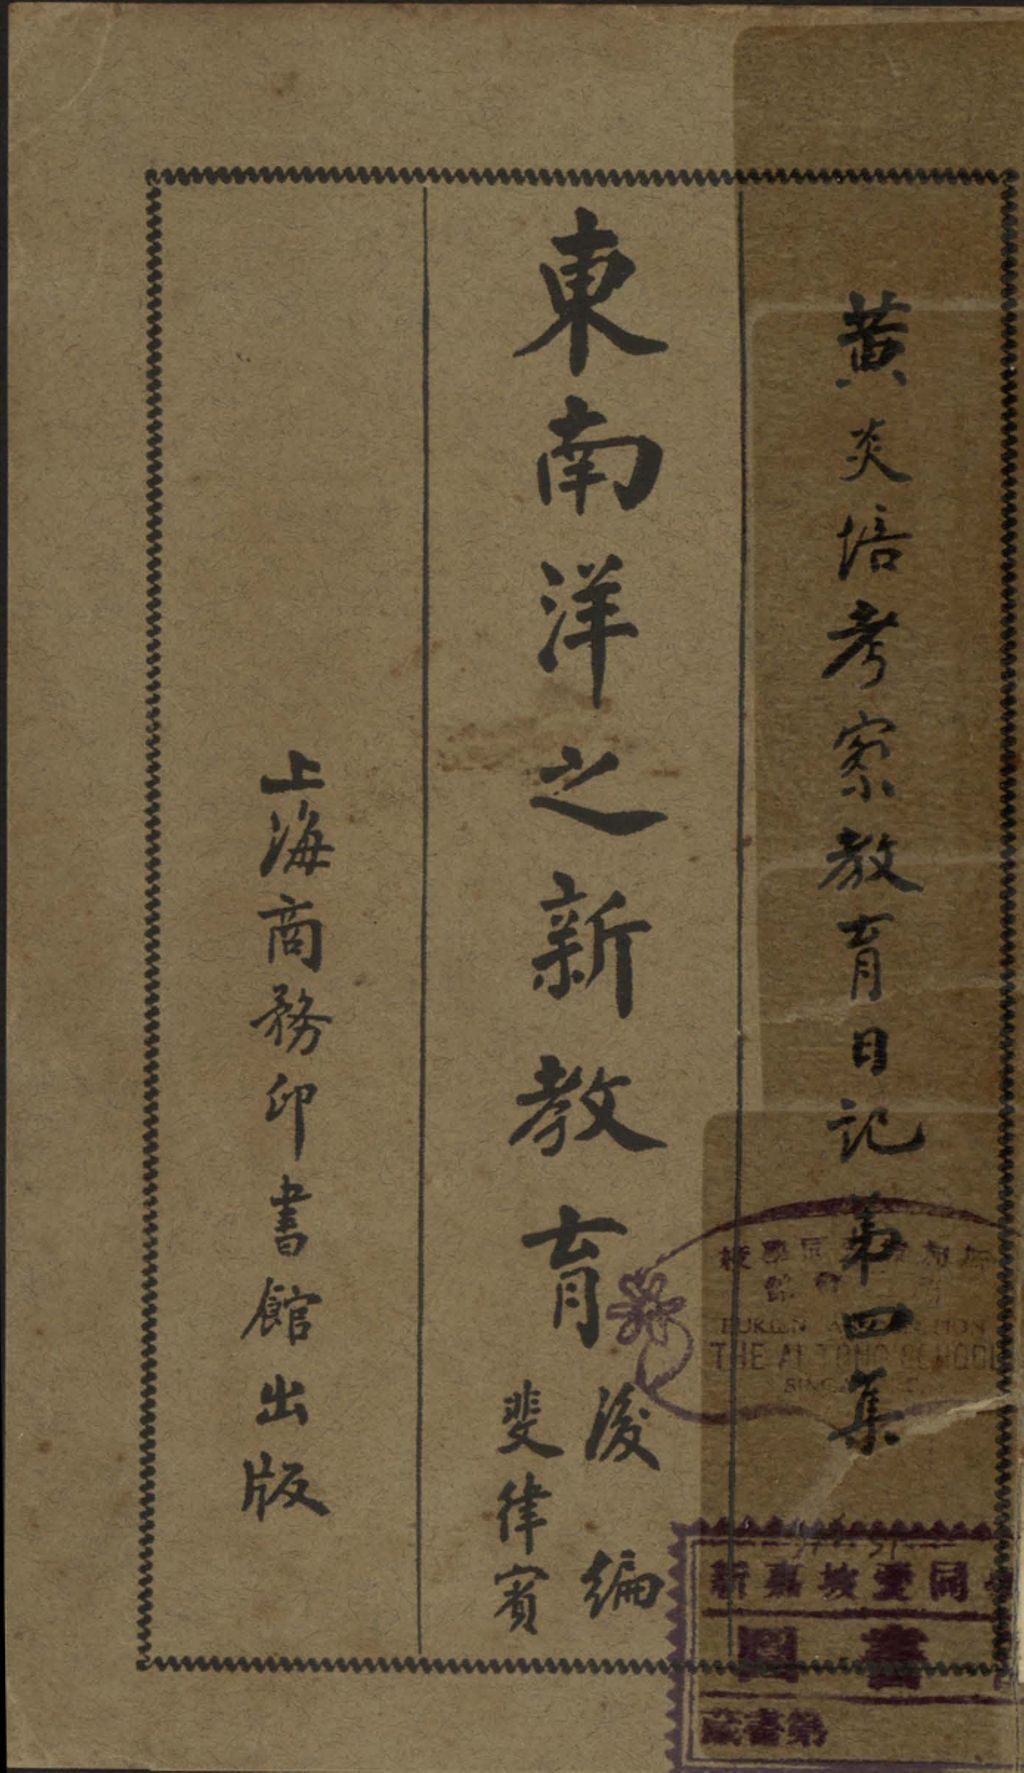 黃炎培考察教育日記第四集
東南洋之新教育
後編
斐律賓
上海商務印書館出版
THE AI TONG SCHOOL
新嘉坡愛同
圖書
藏書第